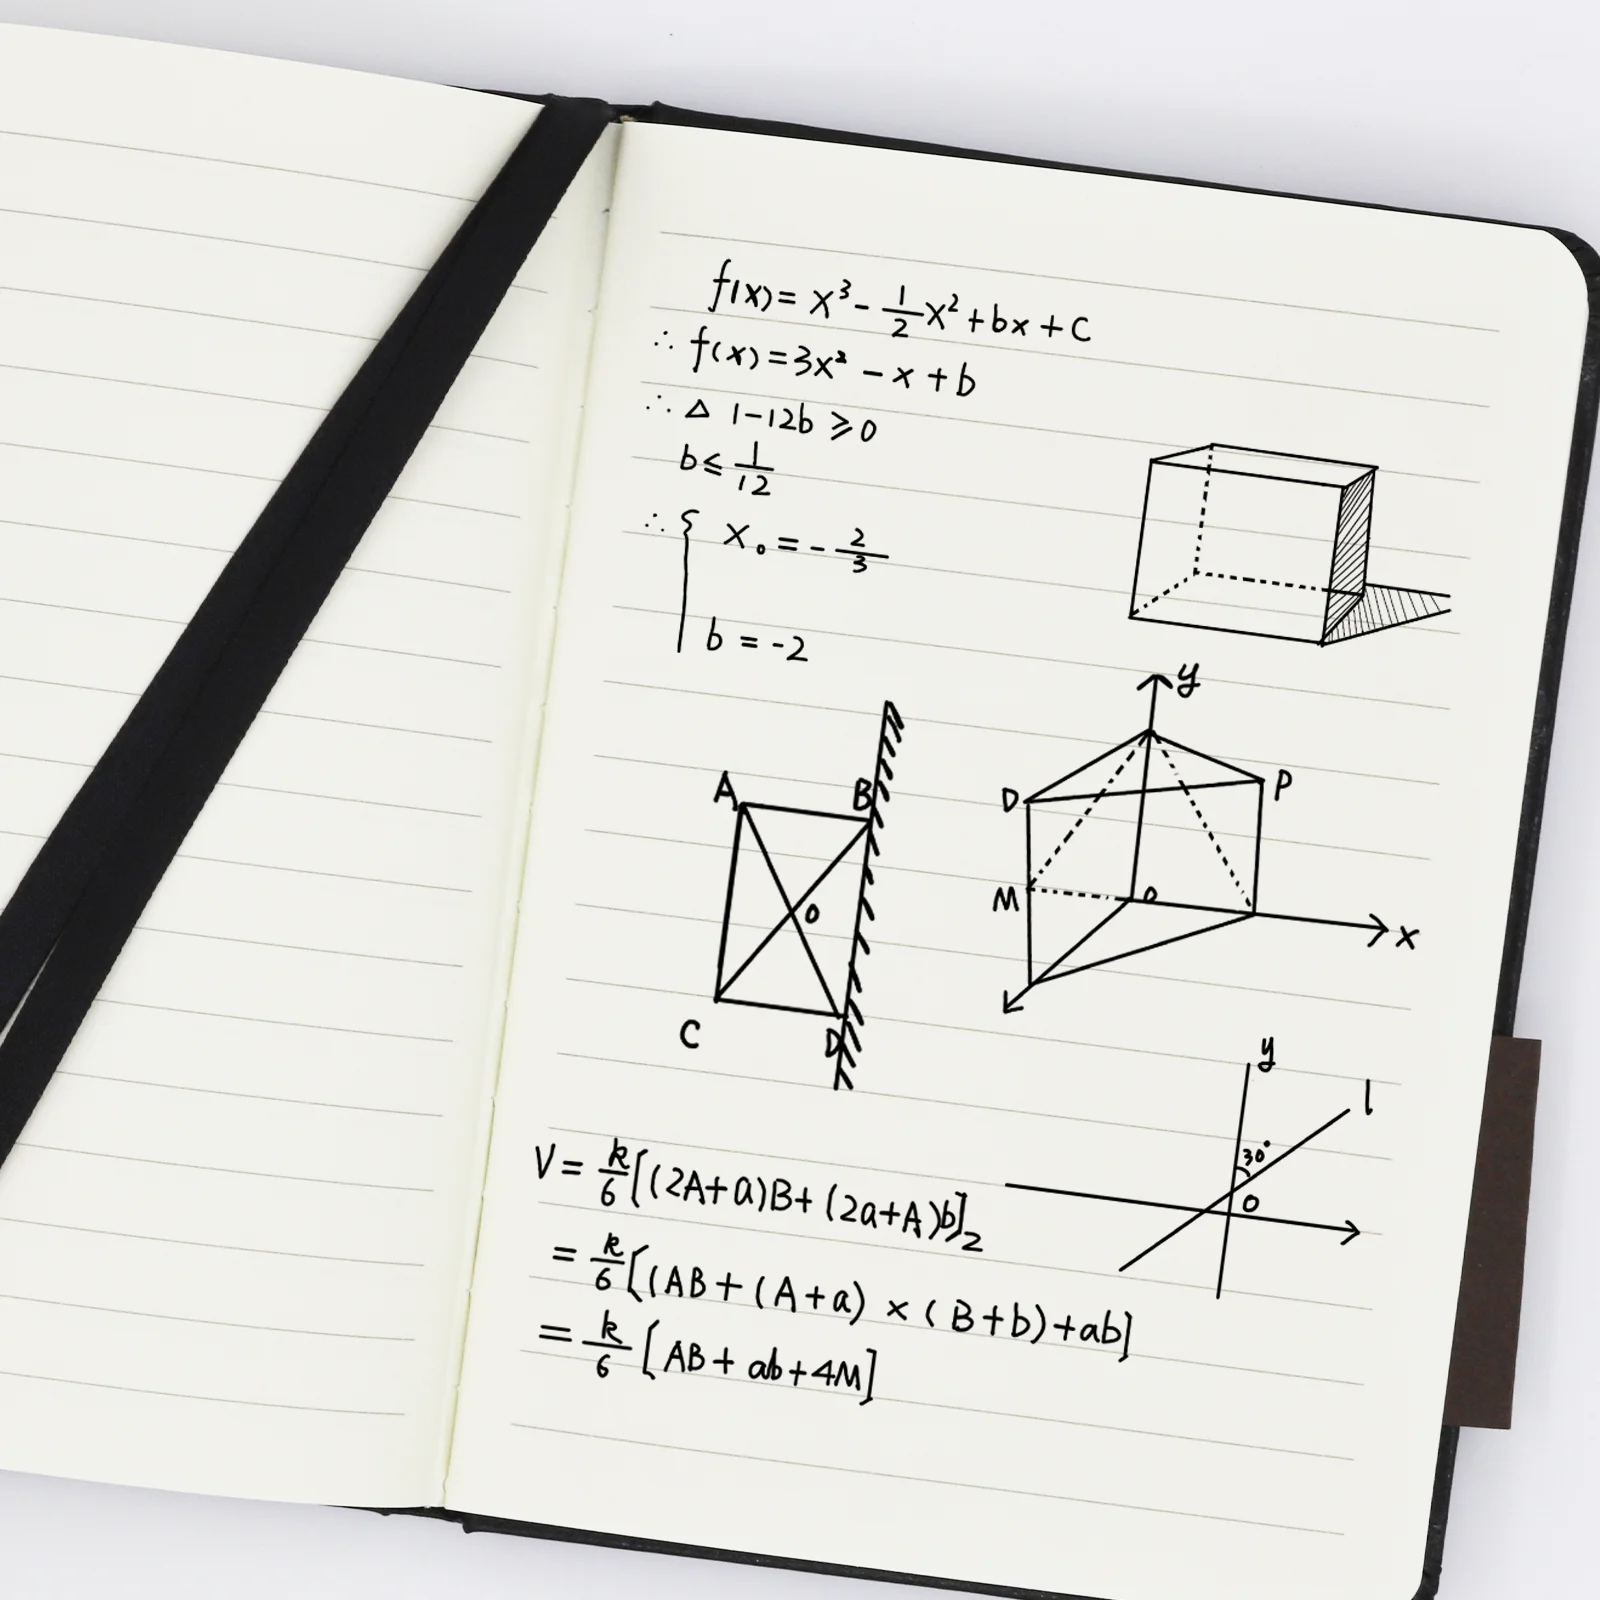 f(x)= x³- 1/2 x²+bx+C
∴ f(x)=3x²-x+b
∴ △ 1-12b ≥0
b≤ 1/12
∴ { x₀ =- 2/3
b = -2
y
A B
D P
O
M O
x
C D
y
l
30°
O
V= k/6[(2A+a)B+(2a+A)b]₂
= k/6[(AB+(A+a)×(B+b)+ab]
= k/6[AB+ab+4M]